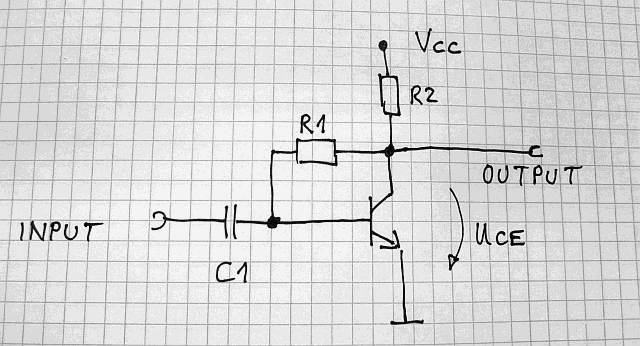 Vcc
R2
R1
OUTPUT
INPUT
UCE
C1